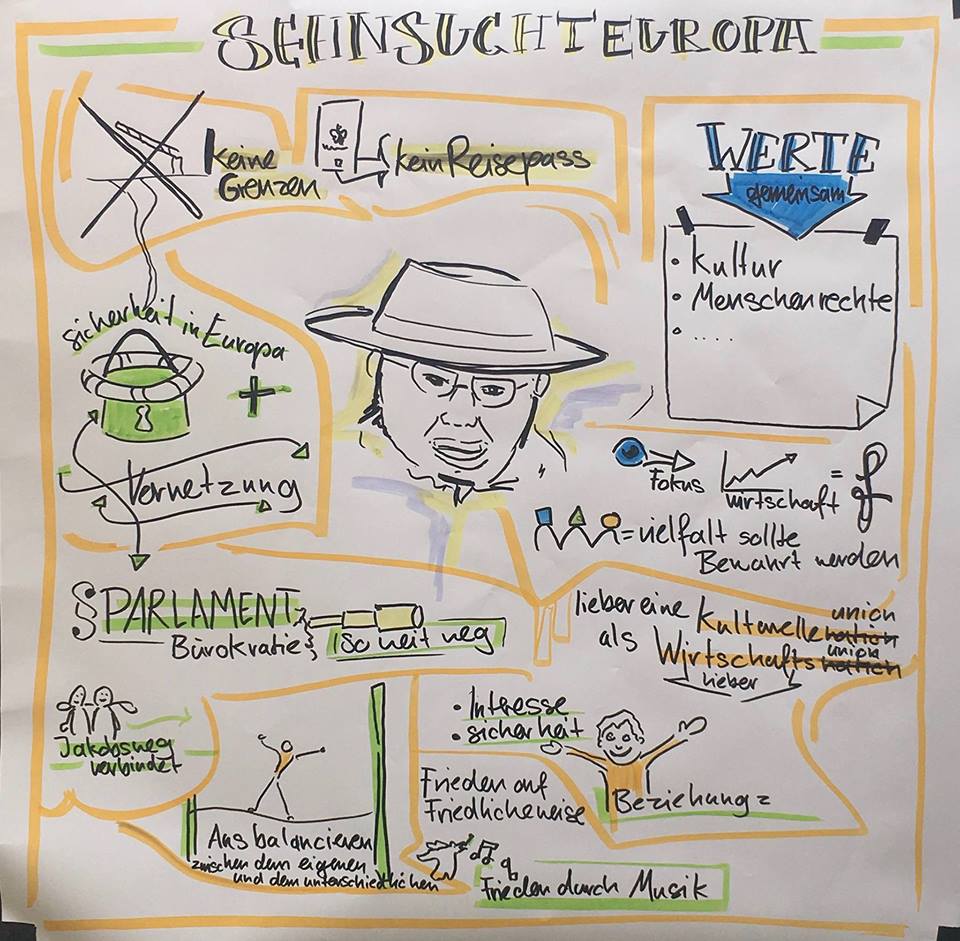 SEHNSUCHT EUROPA
Keine
Grenzen
kein Reisepass
WERTE
gemeinsam
• Kultur
• Menschenrechte
• ....
sicherheit in Europa
+
Vernetzung
Fokus
wirtschaft
=
= vielfalt sollte
Bewahrt werden
§ PARLAMENT
Bürokratie
so weit weg
lieber eine Kulturelle union
als Wirtschafts union
lieber
• Interesse
• sicherheit
Beziehung =
Jakobsweg
verbindet
Ausbalancieren
zwischen dem eigenen
und dem unterschiedlichen
Frieden auf
Friedlicheweise
Frieden durch Musik